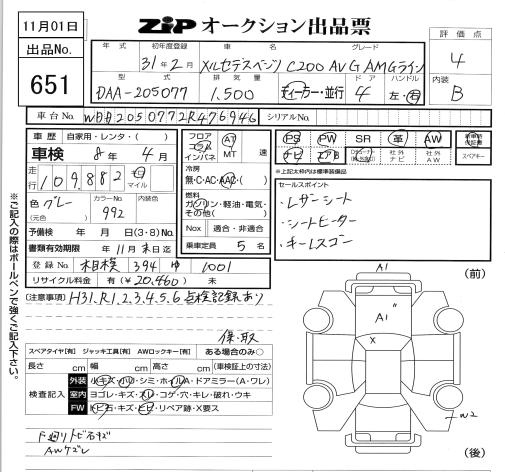 11月01日
ZIP オークション出品票
出品No.
651
年式
初年度登録
車名
グレード
31年2月
メルセデスベンツ C200 AVG AMGライン
型式
排気量
ドア
ハンドル
DAA-205077
1,500
ディーラー・並行
4
左・右
評価点
4
内装
B
車台No.
WDD2050772R476946
シリアルNo.
車歴
自家用・レンタ・( )
車検
8年 4月
走行
109,882
マイル
色
グレー
(元色)
カラーNo.
992
内装色
予備検 年 月 日(3・8)No.
書類有効期限 年 11月末日迄
登録No. 相模 394 ゆ 1001
リサイクル料金 有(¥20,460) 未
フロア
コラム
インパネ
AT
MT
速
冷房
無・C・AC・AAC・( )
燃料
ガソリン・軽油・電気・
その他( )
Nox
適合・非適合
乗車定員 5 名
PS
PW
SR
革
AW
ナビ
エアB
社外
ナビ
社外
AW
スペアキー
※上記太枠内は標準装備品
セールスポイント
レザーシート
シートヒーター
キーレスゴー
(注意事項) H31.R1.2.3.4.5.6点検記録あり
保・取
スペアタイヤ[有] ジャッキ工具[有] AWロックキー[有] ある場合のみ○
長さ cm 幅 cm 高さ cm (車検証上の寸法)
検査記入
外装
小キズ・小ウ・シミ・ホイルA・ドアミラー(A・ワレ)
室内
ヨゴレ・キズ・スレ・コゲ・穴・キレ・破れ・ウキ
FW
トビ石・キズ・ヒビ・リペア跡・X要ス
下廻りトビ石キズ
AWケズレ
※ご記入の際はボールペンで強くご記入下さい。
(前)
A1
A1
X
W2
(後)